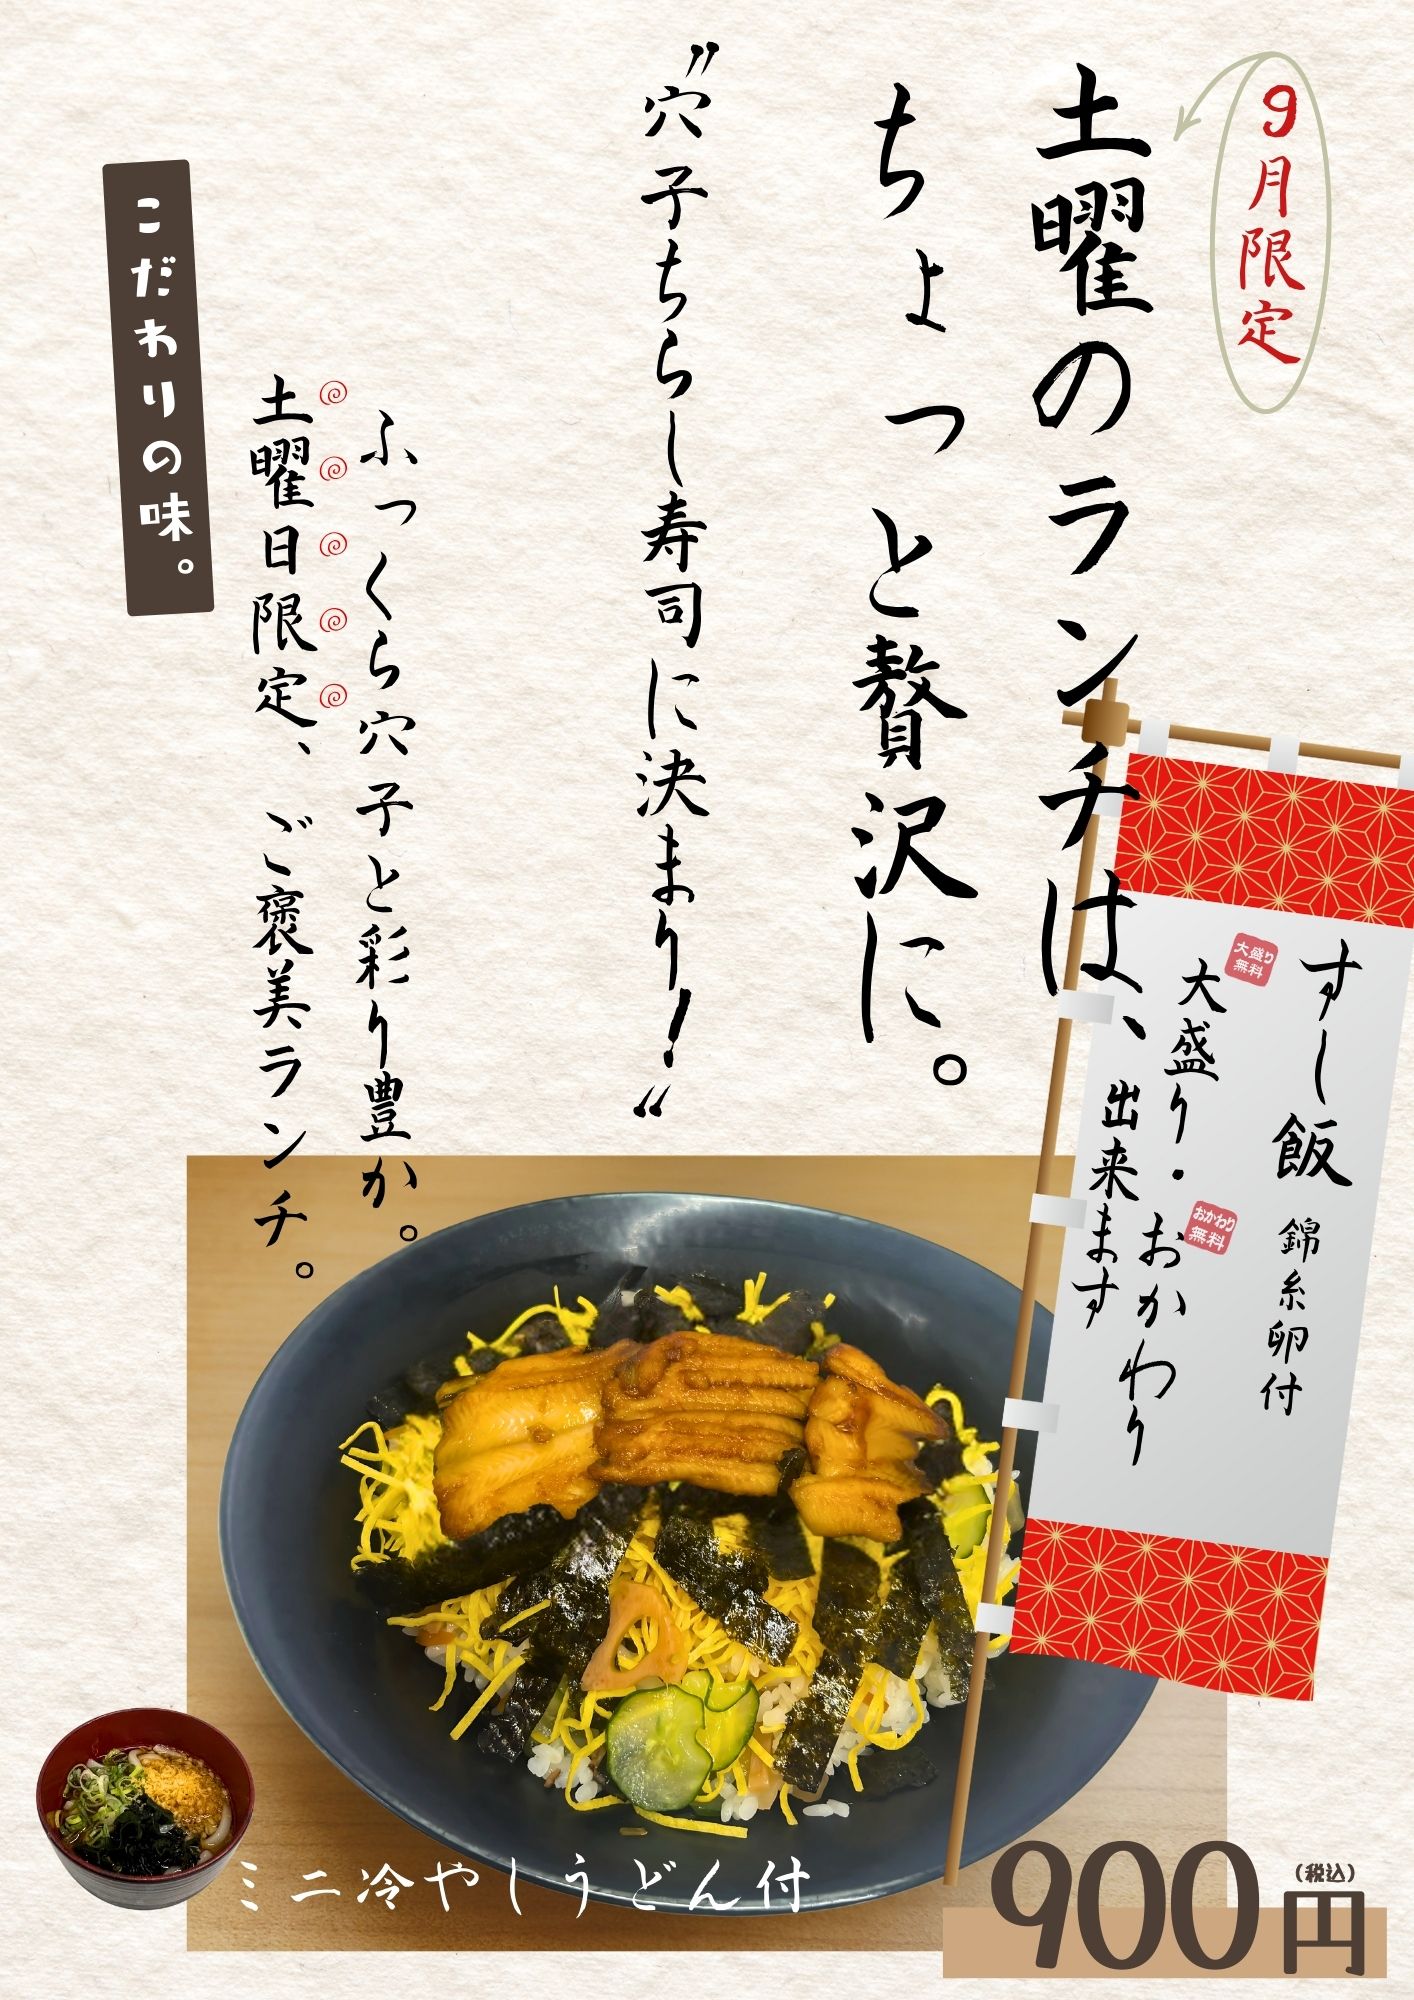 9月限定
土曜のランチは、
ちょっと贅沢に。
〝穴子ちらし寿司に決まり!〟
ふっくら穴子と彩り豊か。
土曜日限定、ご褒美ランチ。
こだわりの味。
すし飯 錦糸卵付
大盛り無料
大盛り・おかわり
おかわり無料
出来ます
ミニ冷やしうどん付
900円
(税込)